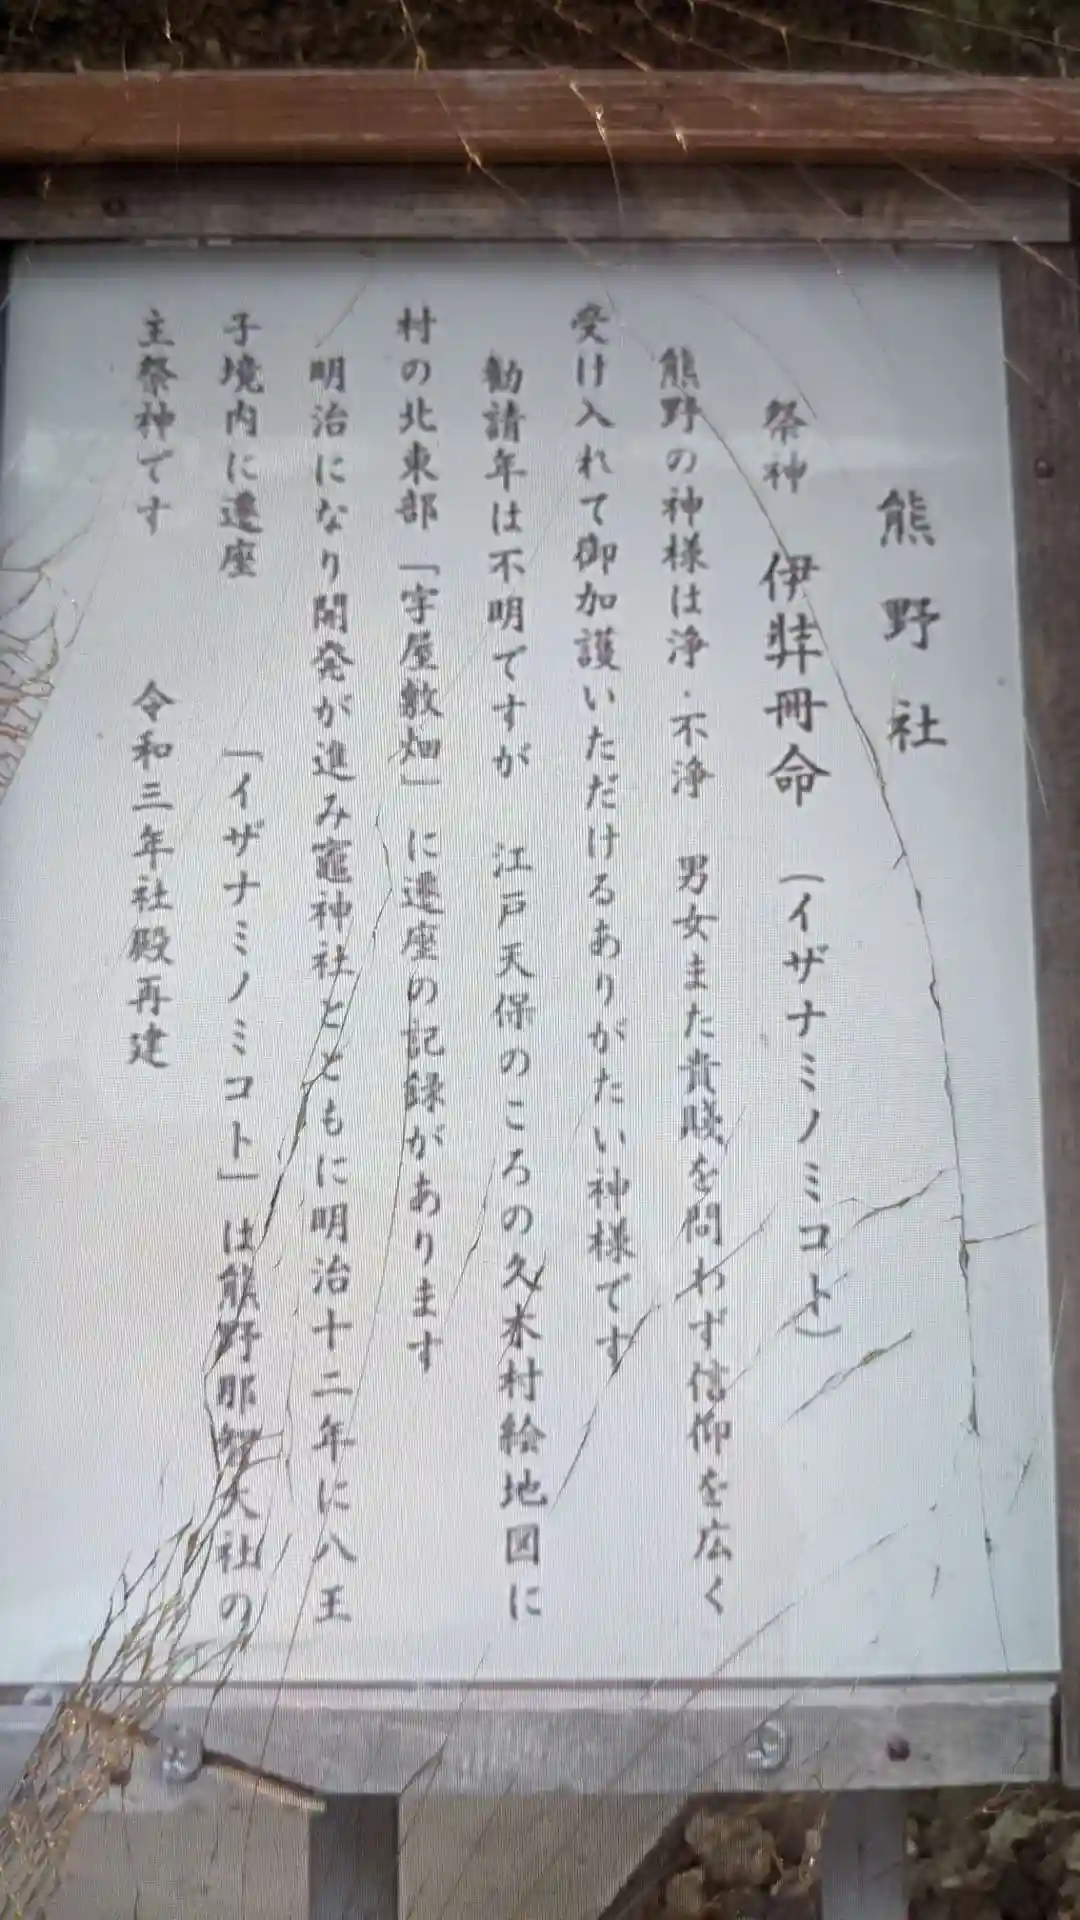 熊野社
祭神 伊弉冊命 (イザナミノミコト)
熊野の神様は浄・不浄 男女また貴賤を問わず信仰を広く
受け入れて御加護いただけるありがたい神様です
勧請年は不明ですが 江戸天保のころの久木村絵地図に
村の北東部「字屋敷畑」に遷座の記録があります
明治になり開発が進み竈神社とともに明治十二年に八王
子境内に遷座 「イザナミノミコト」は熊野那智大社の
主祭神です 令和三年社殿再建